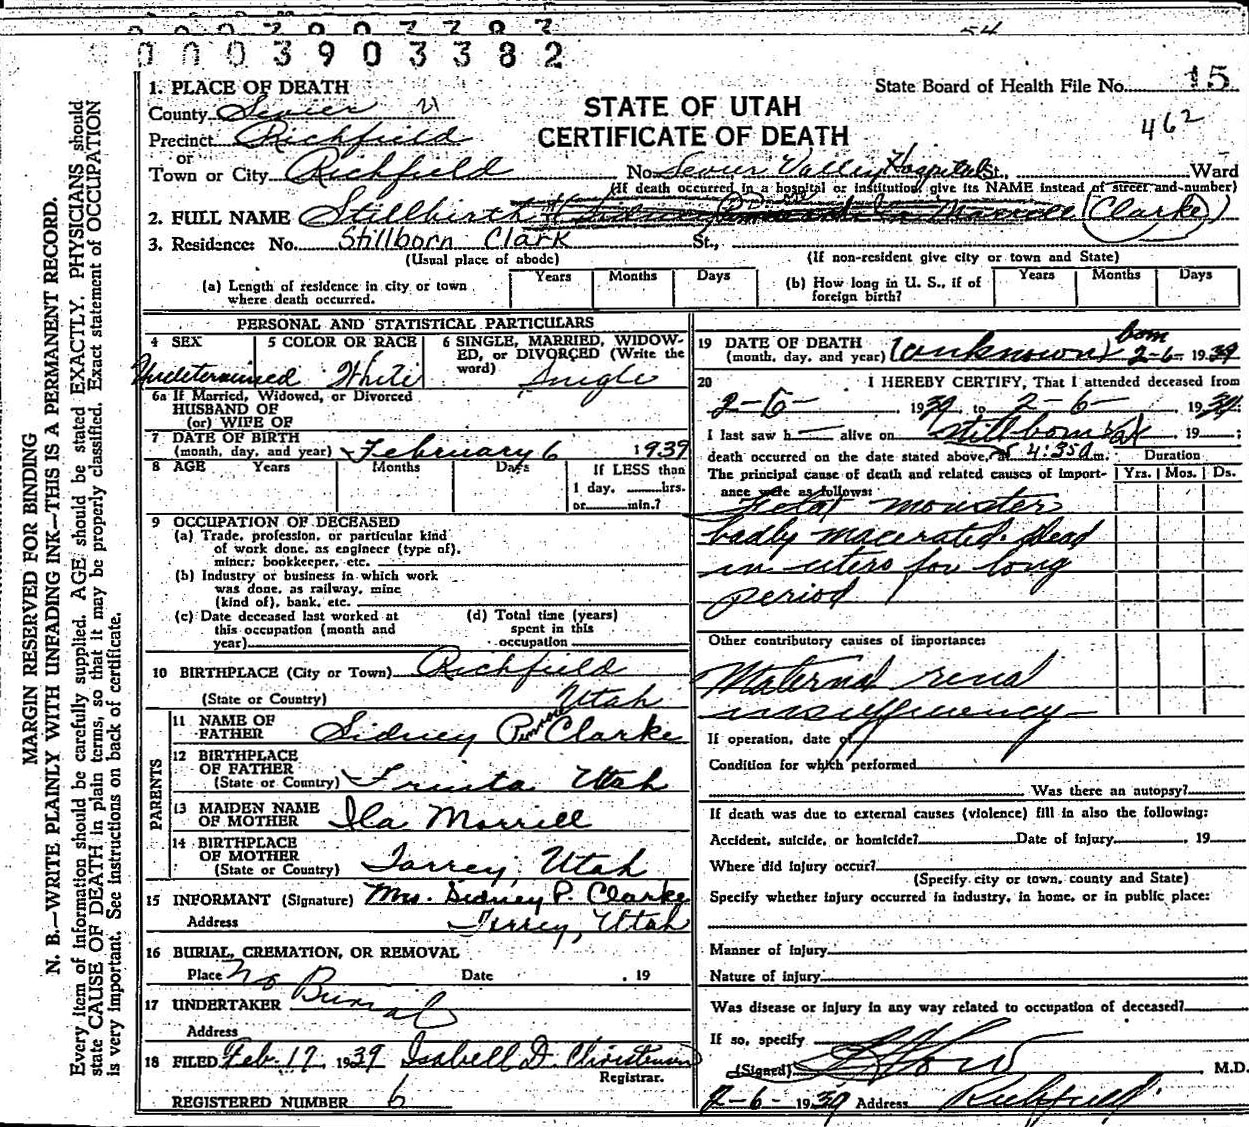 54
0 0 0 3 9 0 3 3 8 2
State Board of Health File No. 15
462
STATE OF UTAH
CERTIFICATE OF DEATH
1. PLACE OF DEATH
County Sevier 21
Precinct Richfield
or
Town or City Richfield No. Sevier Valley Hospital St., Ward
(If death occurred in a hospital or institution, give its NAME instead of street and number)
2. FULL NAME Stillbirth Sidney Morrell (Clarke)
3. Residence: No. Stillborn Clark St.,
(Usual place of abode) (If non-resident give city or town and State)
(a) Length of residence in city or town where death occurred. Years Months Days
(b) How long in U. S., if of foreign birth? Years Months Days
PERSONAL AND STATISTICAL PARTICULARS
4 SEX 5 COLOR OR RACE 6 SINGLE, MARRIED, WIDOW-
ED, or DIVORCED (Write the
word)
Undetermined White Single
6a If Married, Widowed, or Divorced
HUSBAND OF
(or) WIFE OF
7 DATE OF BIRTH
(month, day, and year) February 6 1939
8 AGE Years Months Days If LESS than
1 day, hrs.
or min.?
9 OCCUPATION OF DECEASED
(a) Trade, profession, or particular kind
of work done, as engineer (type of),
miner; bookkeeper, etc.
(b) Industry or business in which work
was done, as railway, mine
(kind of), bank, etc.
(c) Date deceased last worked at
this occupation (month and
year)
(d) Total time (years)
spent in this
occupation
10 BIRTHPLACE (City or Town) Richfield
(State or Country) Utah
PARENTS
11 NAME OF
FATHER Sidney Clarke
12 BIRTHPLACE
OF FATHER
(State or Country) Utah
13 MAIDEN NAME
OF MOTHER Ila Morrell
14 BIRTHPLACE
OF MOTHER
(State or Country) Torrey, Utah
15 INFORMANT (Signature) Mrs. Sidney P. Clarke
Address Torrey, Utah
16 BURIAL, CREMATION, OR REMOVAL
Place No Burial Date , 19
17 UNDERTAKER
Address
18 FILED Feb. 17, 1939 Isabell D. Christensen
Registrar.
REGISTERED NUMBER 6
19 DATE OF DEATH
(month, day, and year) (unknown) born 2-6- 1939
20 I HEREBY CERTIFY, That I attended deceased from
2-6- 1939, to 2-6- 1939.
I last saw h alive on stillborn at, 19 ;
death occurred on the date stated above, at 4:35 a m.
Duration
The principal cause of death and related causes of import-
ance were as follows: Yrs. Mos. Ds.
Fetal monster
badly macerated. dead
in utero for long
period
Other contributory causes of importance:
Maternal renal
insufficiency
If operation, date of
Condition for which performed
Was there an autopsy?
If death was due to external causes (violence) fill in also the following:
Accident, suicide, or homicide? Date of injury , 19
Where did injury occur?
(Specify city or town, county and State)
Specify whether injury occurred in industry, in home, or in public place:
Manner of injury
Nature of injury
Was disease or injury in any way related to occupation of deceased?
If so, specify
(Signed) M.D.
2-6- 1939 Address Richfield
MARGIN RESERVED FOR BINDING
N. B.—WRITE PLAINLY WITH UNFADING INK—THIS IS A PERMANENT RECORD.
Every item of information should be carefully supplied. AGE should be stated EXACTLY. PHYSICIANS should
state CAUSE OF DEATH in plain terms, so that it may be properly classified. Exact statement of OCCUPATION
is very important. See instructions on back of certificate.